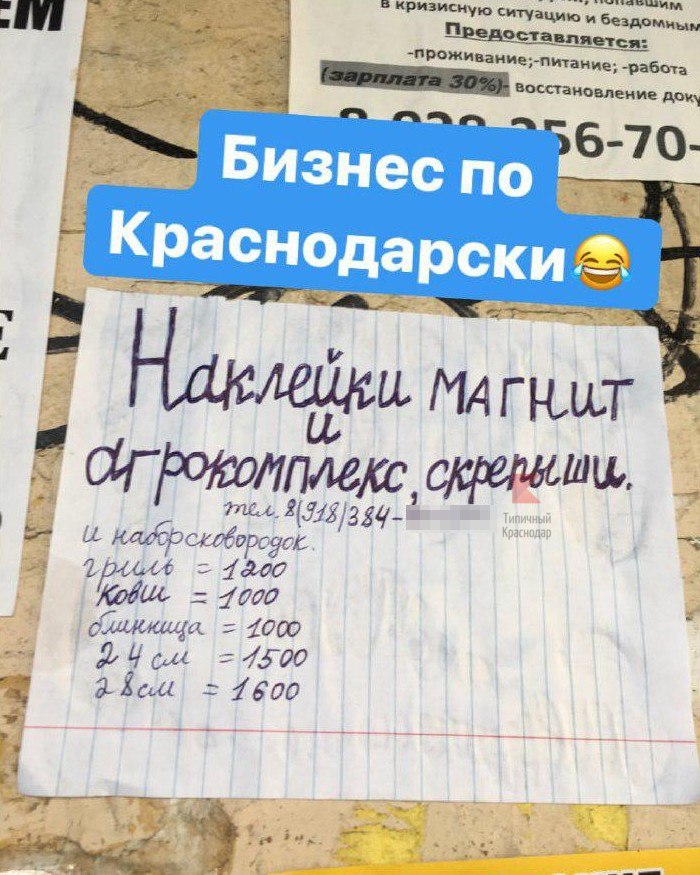 ЕМ
в кризисную ситуацию и бездомным
Предоставляется:
-проживание;-питание; -работа
(зарплата 30%)- восстановление
56-70-
Бизнес по
Краснодарски😂
Наклейки МАГНИТ
и
агрокомплекс, скрепыши.
тел. 8(918)384-
Типичный
Краснодар
и набор сковородок.
гриль = 1200
ковш = 1000
блинница = 1000
24 см = 1500
28 см = 1600